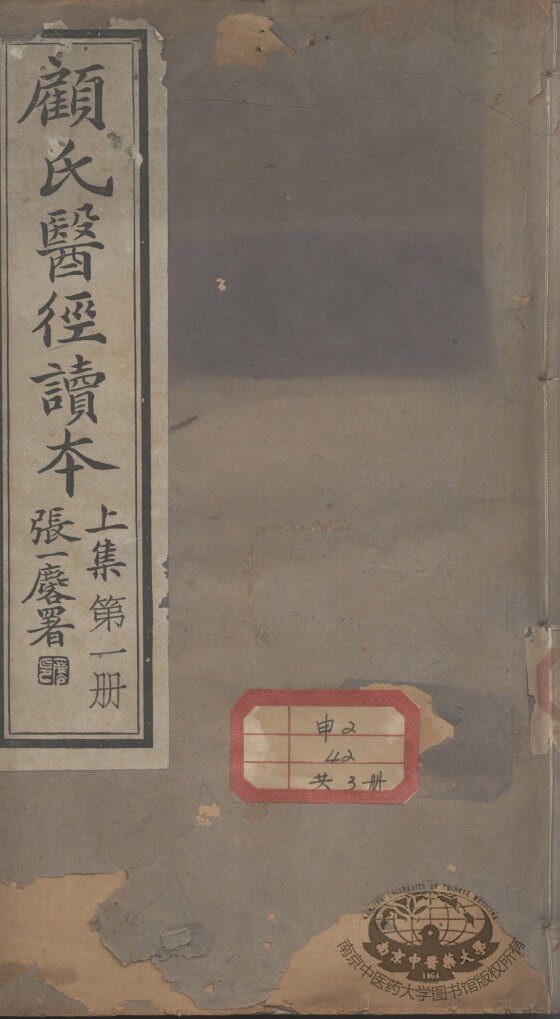 顧氏醫徑讀本
上集 第一册
張一麐署
申2
42
共3册
NANJING UNIVERSITY OF CHINESE MEDICINE
南京中醫藥大學
1954
南京中医药大学图书馆版权所有